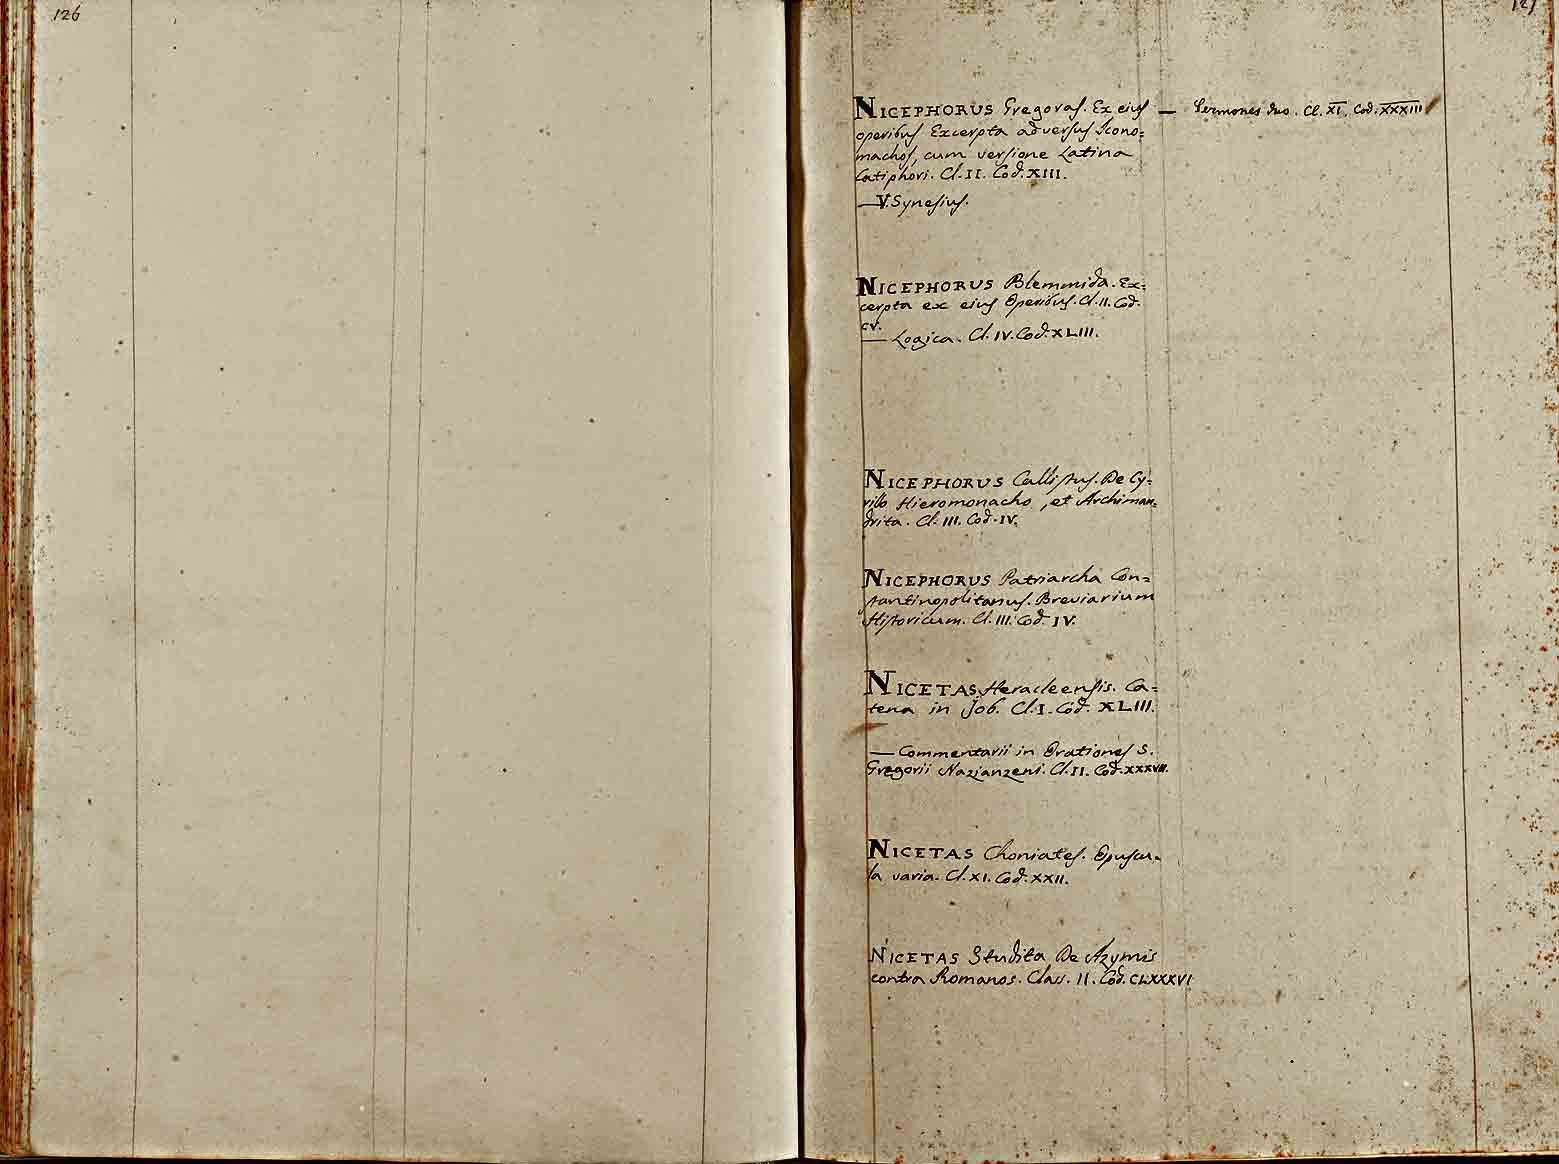 126
127
NICEPHORUS Gregoras. Ex eius
operibus Excerpta adversus Icono=
machos, cum versione Latina
Catiphori. Cl. II. Cod. XIII.
— V. Synesius.
— Sermones duo. Cl. XI. Cod. XXXIII
NICEPHORUS Blemmida. Ex=
cerpta ex eius Operibus. Cl. II. Cod.
CV.
— Logica. Cl. IV. Cod. XLIII.
NICEPHORUS Callistus. De Cy=
rillo Hieromonacho, et Archiman=
drita. Cl. III. Cod. IV.
NICEPHORUS Patriarcha Con=
stantinopolitanus. Breviarium
Historicum. Cl. III. Cod. IV.
NICETAS Heracleensis. Ca=
tena in Job. Cl. I. Cod. XLIII.
— Commentarii in Orationes S.
Gregorii Nazianzeni. Cl. II. Cod. XXXVII.
NICETAS Choniates. Opuscu=
la varia. Cl. XI. Cod. XXII.
NICETAS Studita De Azymis
contra Romanos. Class. II. Cod. CLXXXVI